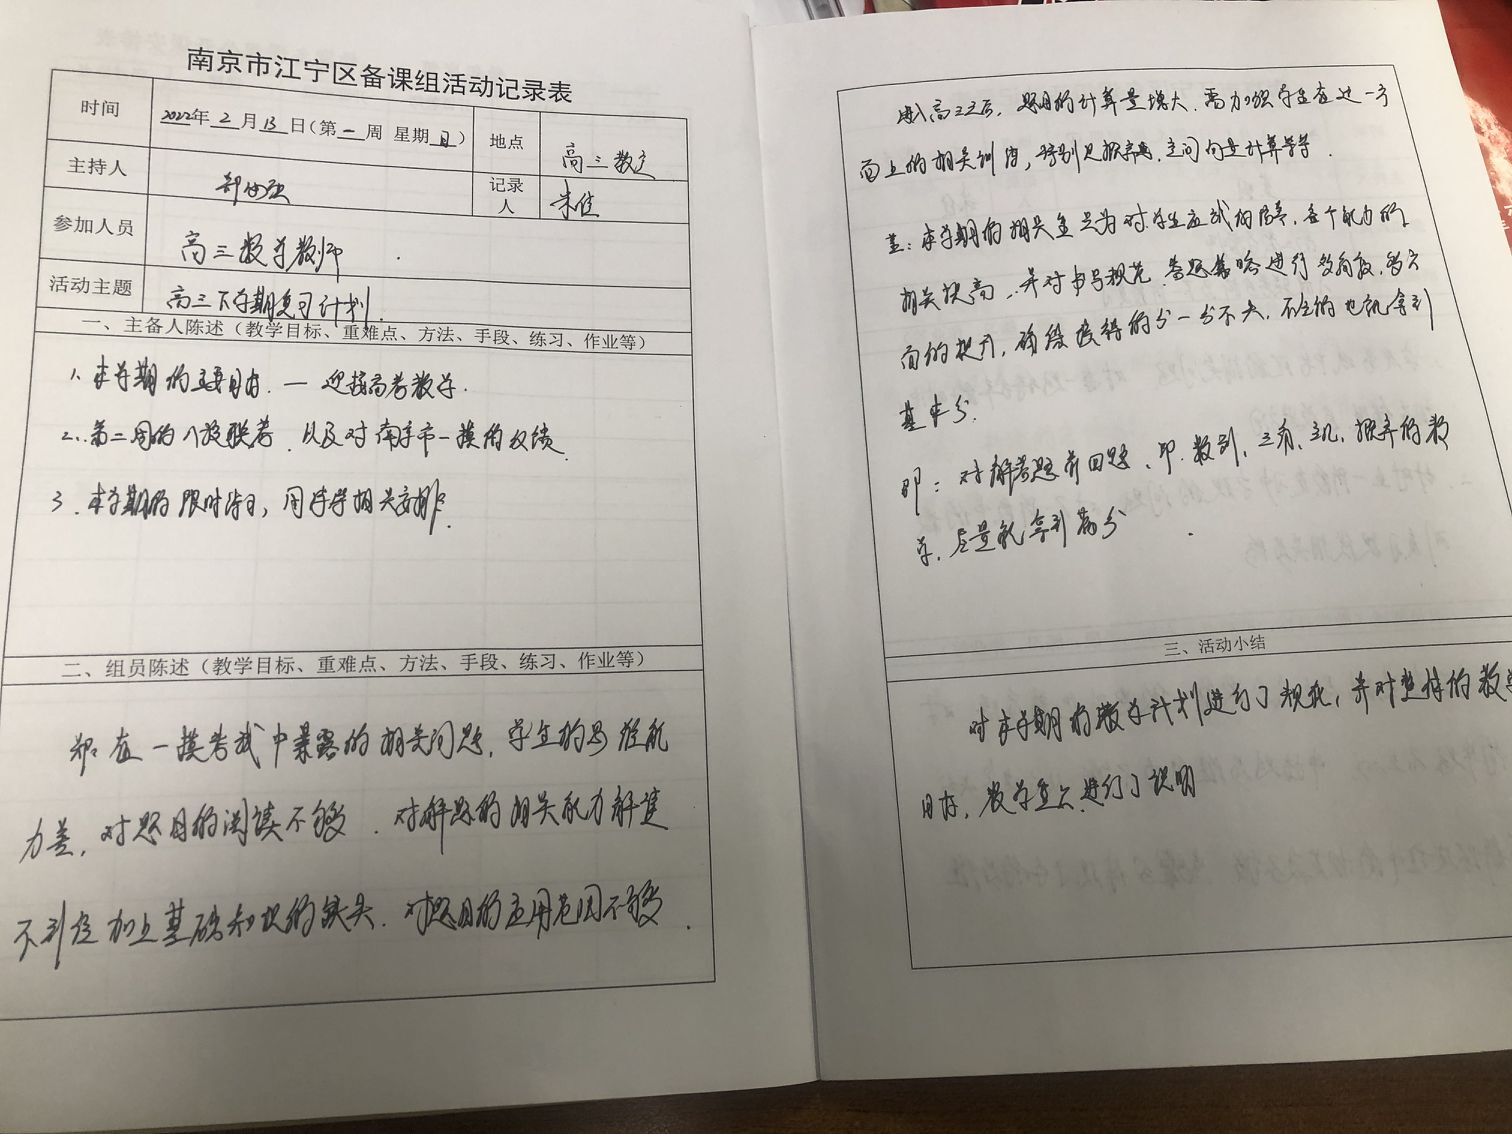 南京市江宁区备课组活动记录表
时间 2022年2月13日(第一周 星期日) 地点 高三数学
主持人 记录人 朱佳
参加人员 高三数学教师
活动主题 高三下学期复习计划
一、主备人陈述（教学目标、重难点、方法、手段、练习、作业等）
1. 本学期的主要目标.一迎接高考数学.
2. 第二周的八校联考.以及对南京市一模的
3. 本学期的限时练习,周学案相关安排.
二、组员陈述（教学目标、重难点、方法、手段、练习、作业等）
郑:在一模考试中暴露的相关问题,学生的思维能
力差,对题目的阅读不够.对解题的相关能力解读
不到位加上基础知识的缺失.对题目的应用范围不够.
进入高三之后,题目的计算量增大.需加强学生在这一方
面上的相关训练,特别是概率,空间向量计算等等.
:本学期的相关重点为对学生应试的指导,各个能力的
相关提高.并对书写规范.答题策略进行多角度,多方
面的提升,确保该得的分一分不失.不会的也能拿到
基本分.
即:对解答题前四题、即.数列,三角,立几,概率的教
学,尽量能拿到高分.
三、活动小结
对本学期的教学计划进行了规范,并对整体的教学
目标,教学重点进行了说明